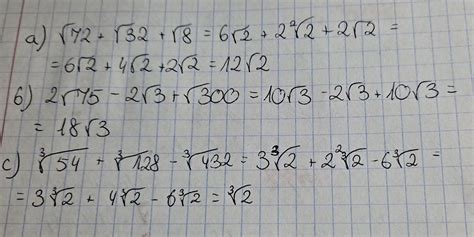 a) √72 + √32 + √8 = 6√2 + 2²√2 + 2√2 =
= 6√2 + 4√2 + 2√2 = 12√2
б) 2√75 - 2√3 + √300 = 10√3 - 2√3 + 10√3 =
= 18√3
c) ∛54 + ∛128 - ∛432 = 3∛2 + 2²∛2 - 6∛2 =
= 3∛2 + 4∛2 - 6∛2 = ∛2